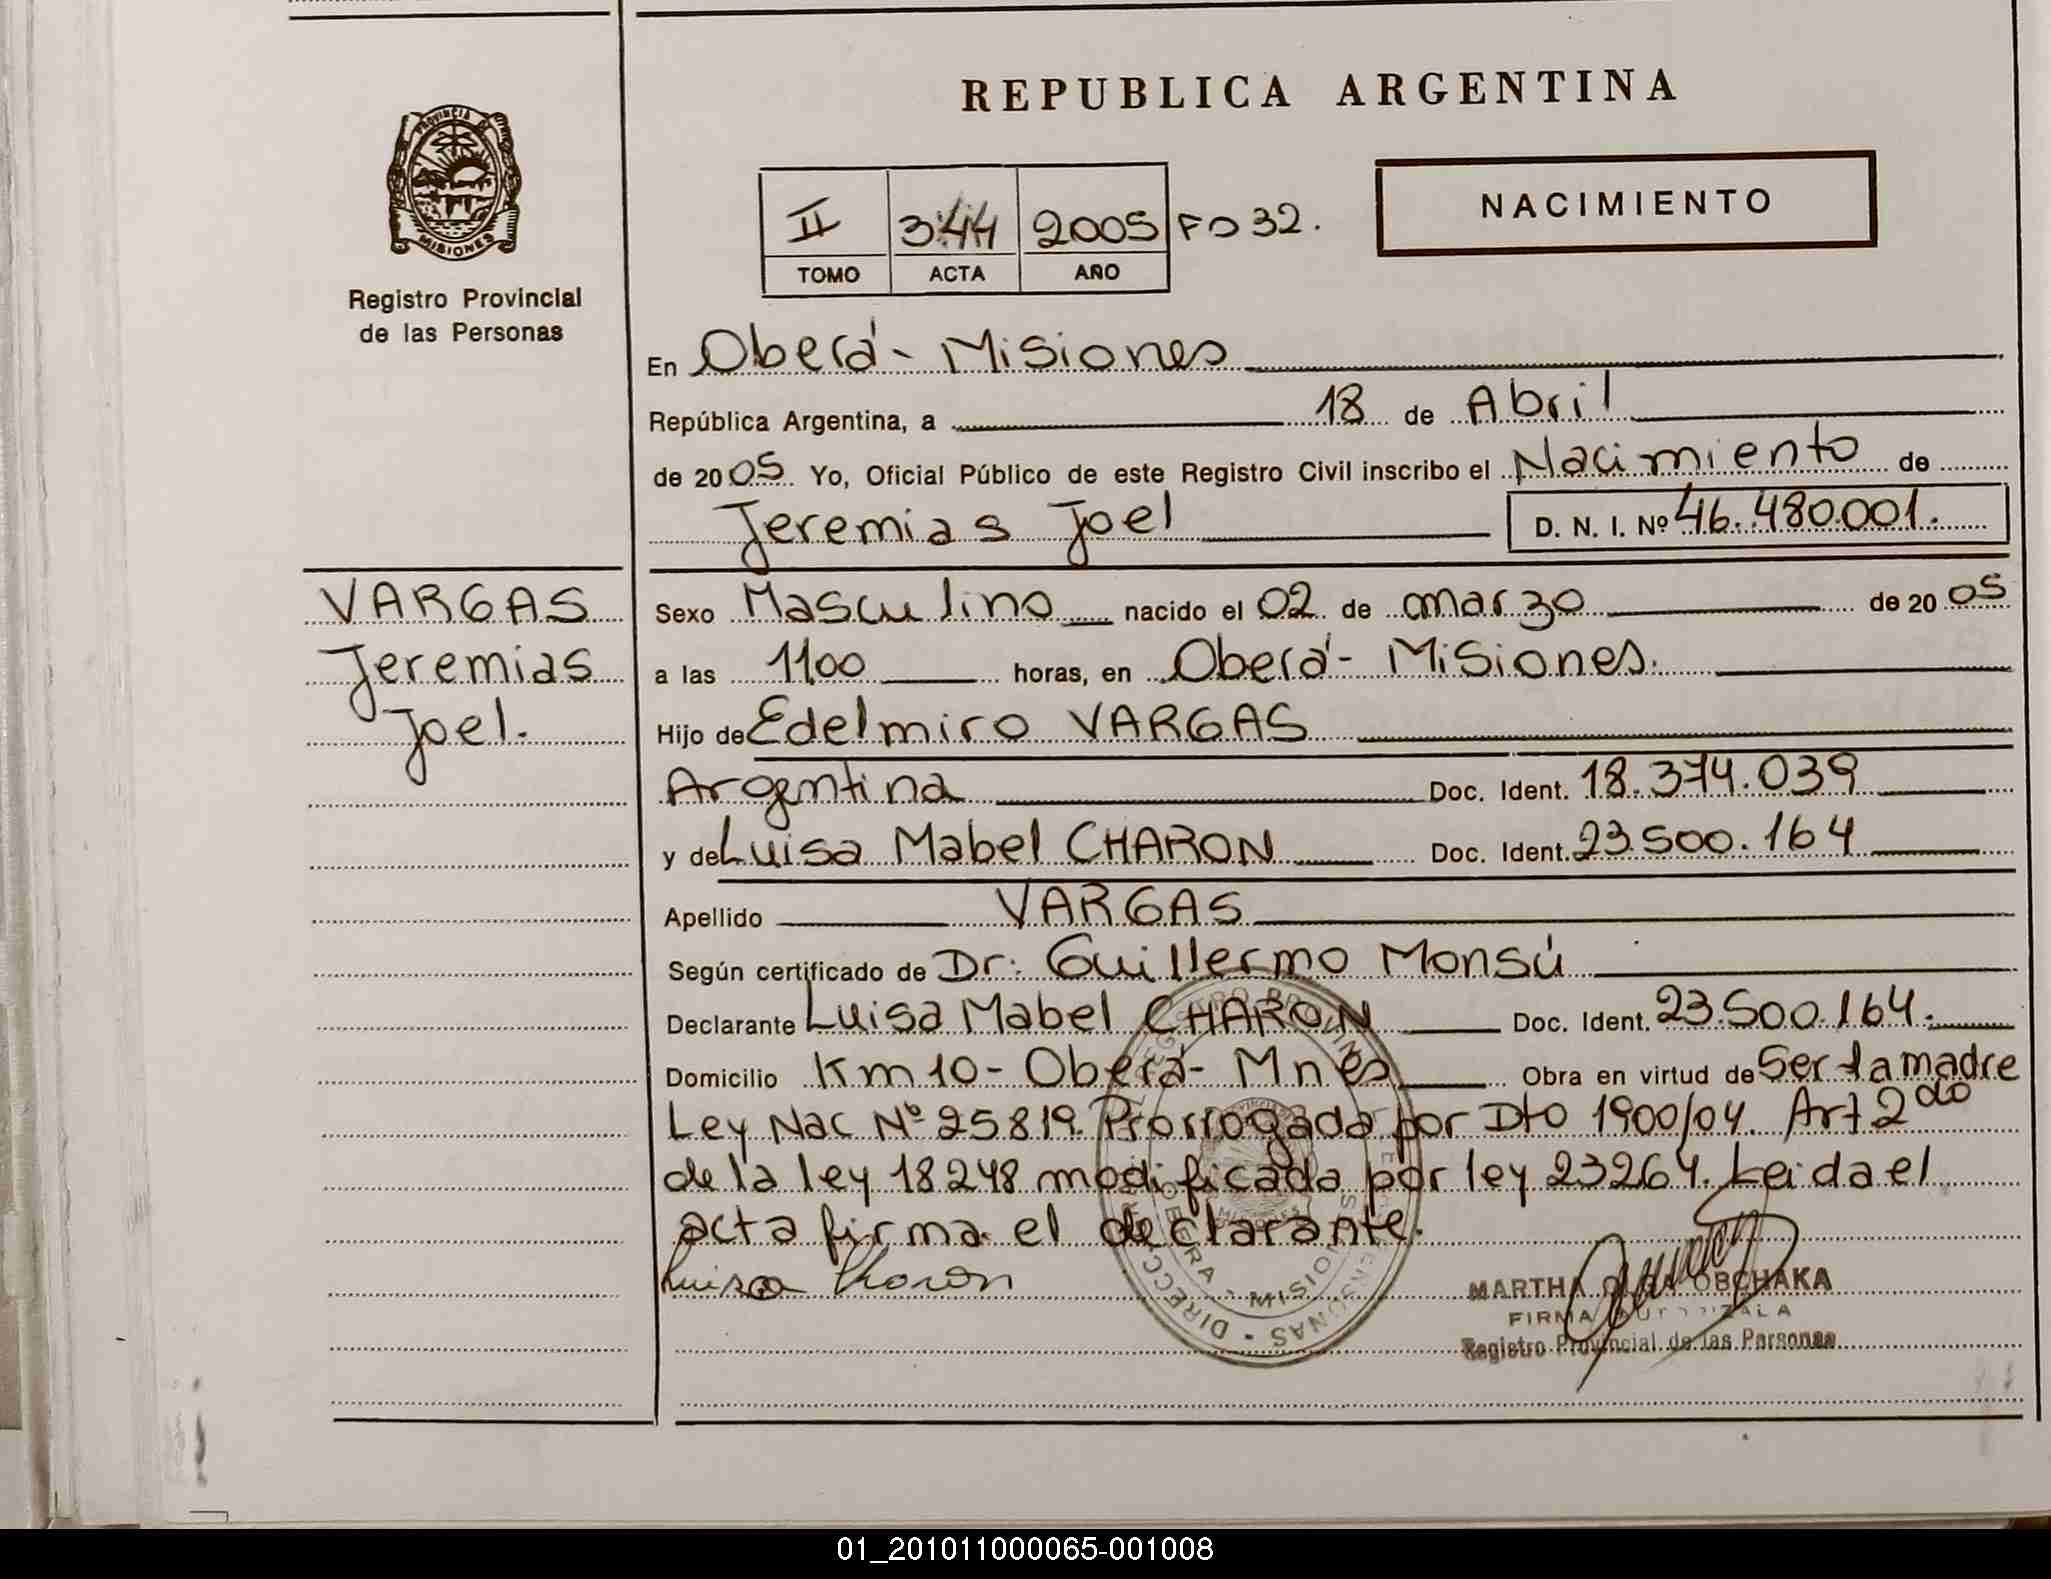 REPUBLICA ARGENTINA
PROVINCIA DE MISIONES
Registro Provincial
de las Personas
II 344 2005 Fo 32.
TOMO ACTA AÑO
NACIMIENTO
En Oberá - Misiones
República Argentina, a 18 de Abril
de 2005 Yo, Oficial Público de este Registro Civil inscribo el Nacimiento de
Jeremias Joel D. N. I. Nº 46.480.001.
VARGAS
Jeremias
Joel.
Sexo Masculino nacido el 02 de marzo de 2005
a las 11,00 horas, en Oberá - Misiones.
Hijo de Edelmiro VARGAS
Argentina Doc. Ident. 18.374.039
y de Luisa Mabel CHARON Doc. Ident. 23.500.164
Apellido VARGAS
Según certificado de Dr. Guillermo Monsú
Declarante Luisa Mabel CHARON Doc. Ident. 23.500.164.
Domicilio Km 10 - Oberá - Mnes Obra en virtud de Ser la madre
Ley Nac Nº 25819. Prorrogada por Dto 1900/04. Art 2do
de la ley 18248 modificada por ley 23264. Leida el
acta firma el declarante.
Luisa Charon
MARTHA OLGA OBCHAKA
FIRMA AUTORIZADA
Registro Provincial de las Personas
01_201011000065-001008